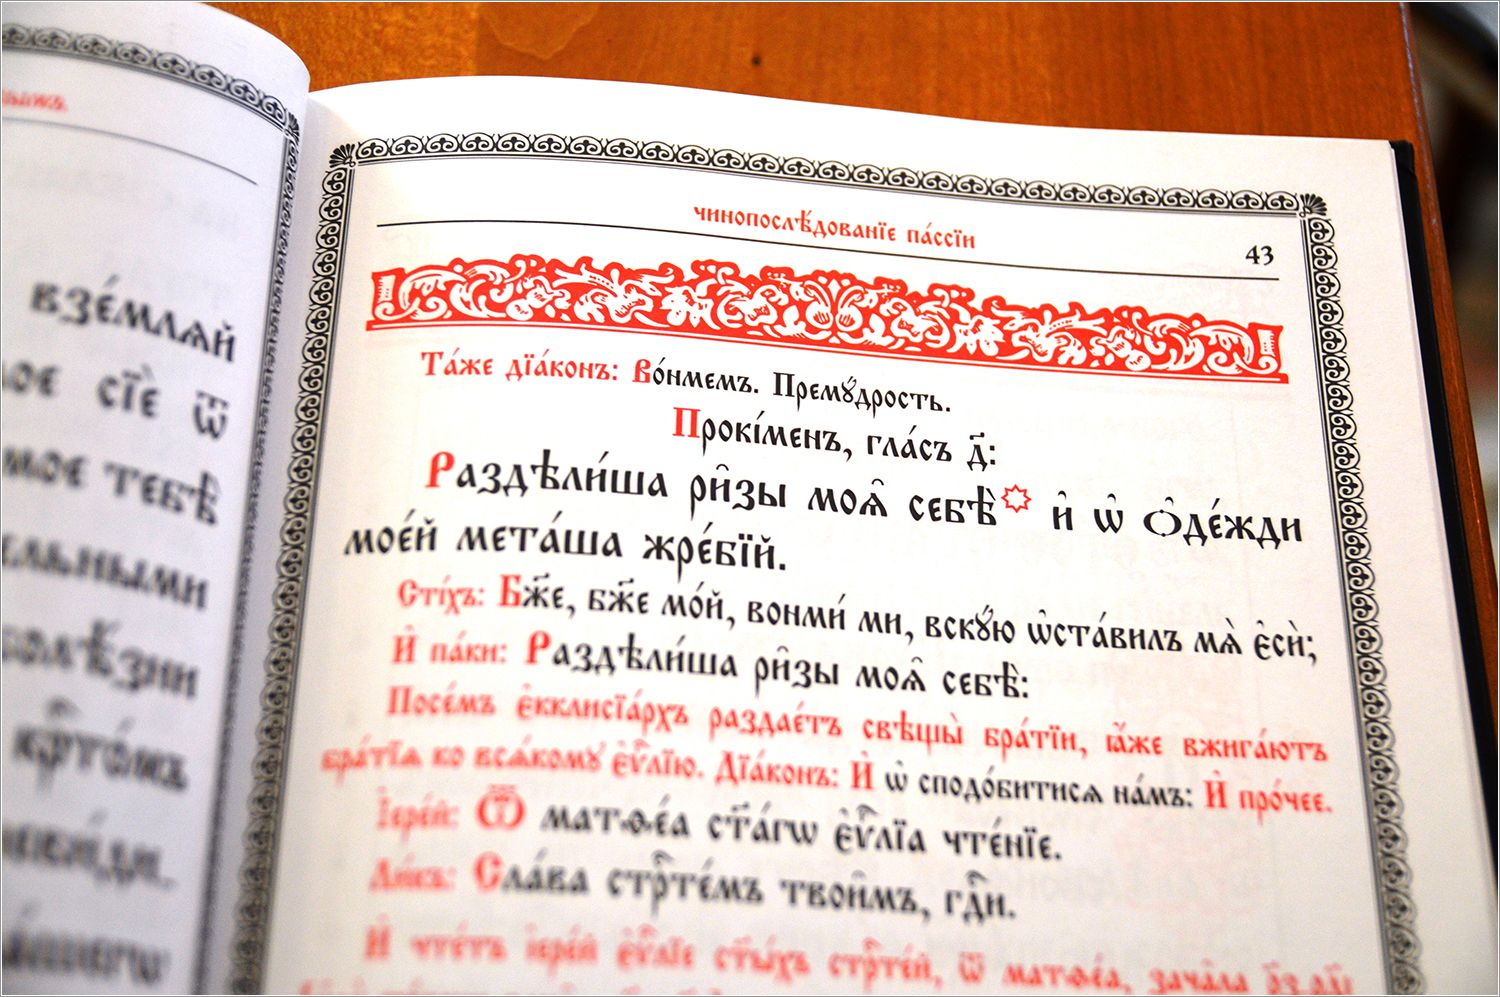 взе́млѧй
сїѐ ѿ
тебѣ̀
чинопослѣ́дованїе па́ссїи
43
Та́же дїа́конъ: Во́нмемъ. Премꙋ́дрость.
Прокі́менъ, гла́съ д҃:
Раздѣли́ша ри̑зы моѧ̑ себѣ̀ и҆ ѡ҆ ѻ҆де́жди
мое́й мета́ша жре́бїй.
Сті́хъ: Бж҃е, бж҃е мо́й, вонми́ ми, вскꙋ́ю ѡ҆ста́вилъ мѧ̀ є҆сѝ;
И҆ па́ки: Раздѣли́ша ри̑зы моѧ̑ себѣ̀:
Посе́мъ є҆кклисїа́рхъ раздае́тъ свѣщы̀ бра́тїи, ꙗ҆́же вжига́ютъ
бра́тїѧ ко всѧ́комꙋ є҆ѵⷢ҇лїю. Дїа́конъ: И҆ ѡ҆ сподо́битисѧ на́мъ: И҆ про́чее.
І҆ере́й: Ѿ матѳе́а ст҃а́гѡ є҆ѵⷢ҇лїа чте́нїе.
Ли́къ: Сла́ва стрⷭ҇те́мъ твои̑мъ, гдⷭ҇и.
И҆ чте́тъ і҆ере́й є҆ѵⷢ҇лїе ст҃ы́хъ стрⷭ҇те́й, ѿ матѳе́а, зача́ла